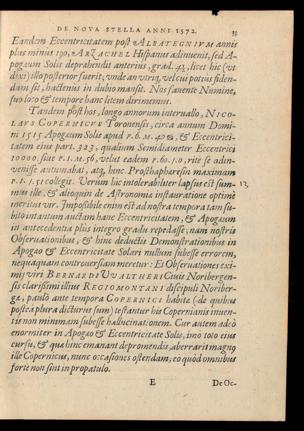 DE NOVA STELLA ANNI 1572. 33
Eandem Eccentricitatem post ALBATEGNIVM annis
plus minus 190, ARZACHEL Hispanus adinuenit, sed A-
pogæum Solis deprehendit anterius, grad. licet hic (vt
dixi) illo posterior fuerit, vnde an vtriq; vel cui potius fiden-
dum sit, hactenus in dubio mansit. Nos fauente Numine,
suo loco & tempore hanc litem dirimemus.
Tandem post hos, longo annorum interuallo, NICO-
LAVS COPERNICVS Toronensis, circa annum Domi-
ni 1515 Apogæum Solis apud P. 6. M. 40 & Eccentrici-
tatem eius part. 323, qualium Semidiameter Eccentrici
10000, siue P. 1. M. 56, velut eadem P. 60. 1. 0, rite se adin-
uenisse autumabat, atq; hinc Prosthapheresin maximam
P. 1. 51 collegit. Verum hic intolerabiliter lapsus est sum-
mus ille, & alioquin de Astronomiæ instauratione optime
meritus vir. Impossibile enim est ad nostra tempora tam su-
bito intantum auctam hanc Eccentricitatem, & Apogæum
in antecedentia plus integro gradu repedasse, nam nostris
Obseruationibus, & hinc deductis Demonstrationibus in
Apogæo & Eccentricitate Solari nullum subesse errorem,
nequaquam controuersiam meretur: Et Obseruationes exi-
mij viri BERNARDI VVALTHERI Ciuis Noribergen-
sis clarissimi illius REGIOMONTANI discipuli Noriber-
gæ, paulò ante tempora COPERNICI habitæ (de quibus
postea plura dicturus sum) testantur his Copernianis inuen-
tis non minimam subesse hallucinationem. Cur autem adeò
enormiter in Apogæo & Eccentricitate Solis, imò toto eius
cursu, & quæ hinc emanant depromendis, aberrarit magnus
ille Copernicus, nunc occasiones ostendam, eò quòd omnibus
forte non sint in propatulo.
E De Oc-